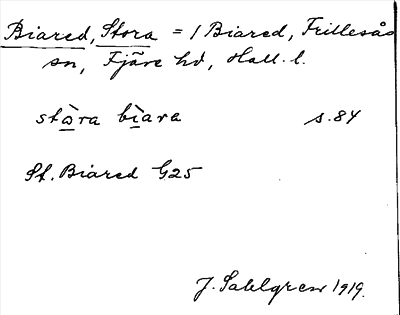 Biared, Stora = 1 Biared, Frillesås
sn, Fjäre hd, Hall. l.
stòra bìara s. 84
St. Biared G25
J. Sahlgren 1919.